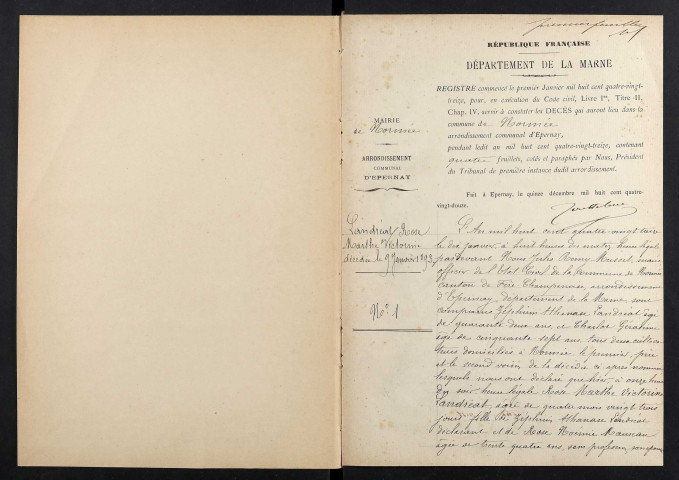 premier feuillet
RÉPUBLIQUE FRANÇAISE
DÉPARTEMENT DE LA MARNE
REGISTRE commencé le premier Janvier mil huit cent quatre-vingt-
treize, pour, en exécution du Code civil, Livre Ier, Titre II,
Chap. IV, servir à constater les DÉCÈS qui auront lieu dans la
commune de Normée
arrondissement communal d'Epernay,
pendant ledit an mil huit cent quatre-vingt-treize, contenant
quatre feuillets, cotés et paraphés par Nous, Président
du Tribunal de première instance dudit arrondissement.
Fait à Epernay, le quinze décembre mil huit cent quatre-
vingt-douze.
MAIRIE
de Normée
ARRONDISSEMENT
COMMUNAL
D'EPERNAY
Landréat Rose
Marthe Victorine
décédée le 9 Janvier 1893
No 1
L'An mil huit cent quatre vingt treize
le dix janvier, à huit heures du matin, heure légale
pardevant Nous Jules Remy Musset, maire
officier de l'Etat Civil de la commune de Normée
canton de Fère Champenoise, arrondissement
d'Epernay, département de la Marne, sont
comparus Zéphirin Athanase Landréat âgé
de quarante deux ans, et Charlot
âgé de cinquante sept ans tous deux cultiva-
teurs domiciliés à Normée le premier, père
et le second voisin de la décédée ci après nommée
lesquels nous ont déclaré que hier, à onze heures
du soir heure légale Rose Marthe Victorine
Landréat, âgée de quatre mois vingt trois
jours fille de Zéphirin Athanase Landréat
déclarant et de Rose Noémie
âgée de trente quatre ans, sans profession, son épouse